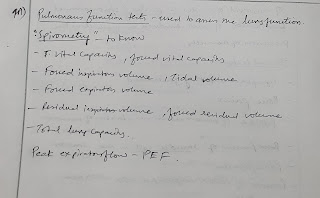 Pulmonary function tests - used to assess the lung function.
"Spirometry" - to know
- T vital capacity, forced vital capacity
- Forced inspiratory volume, Tidal volume
- Forced expiratory volume
- Residual inspiratory volume, forced residual volume
- Total lung capacity.
Peak expiratory flow - PEF.